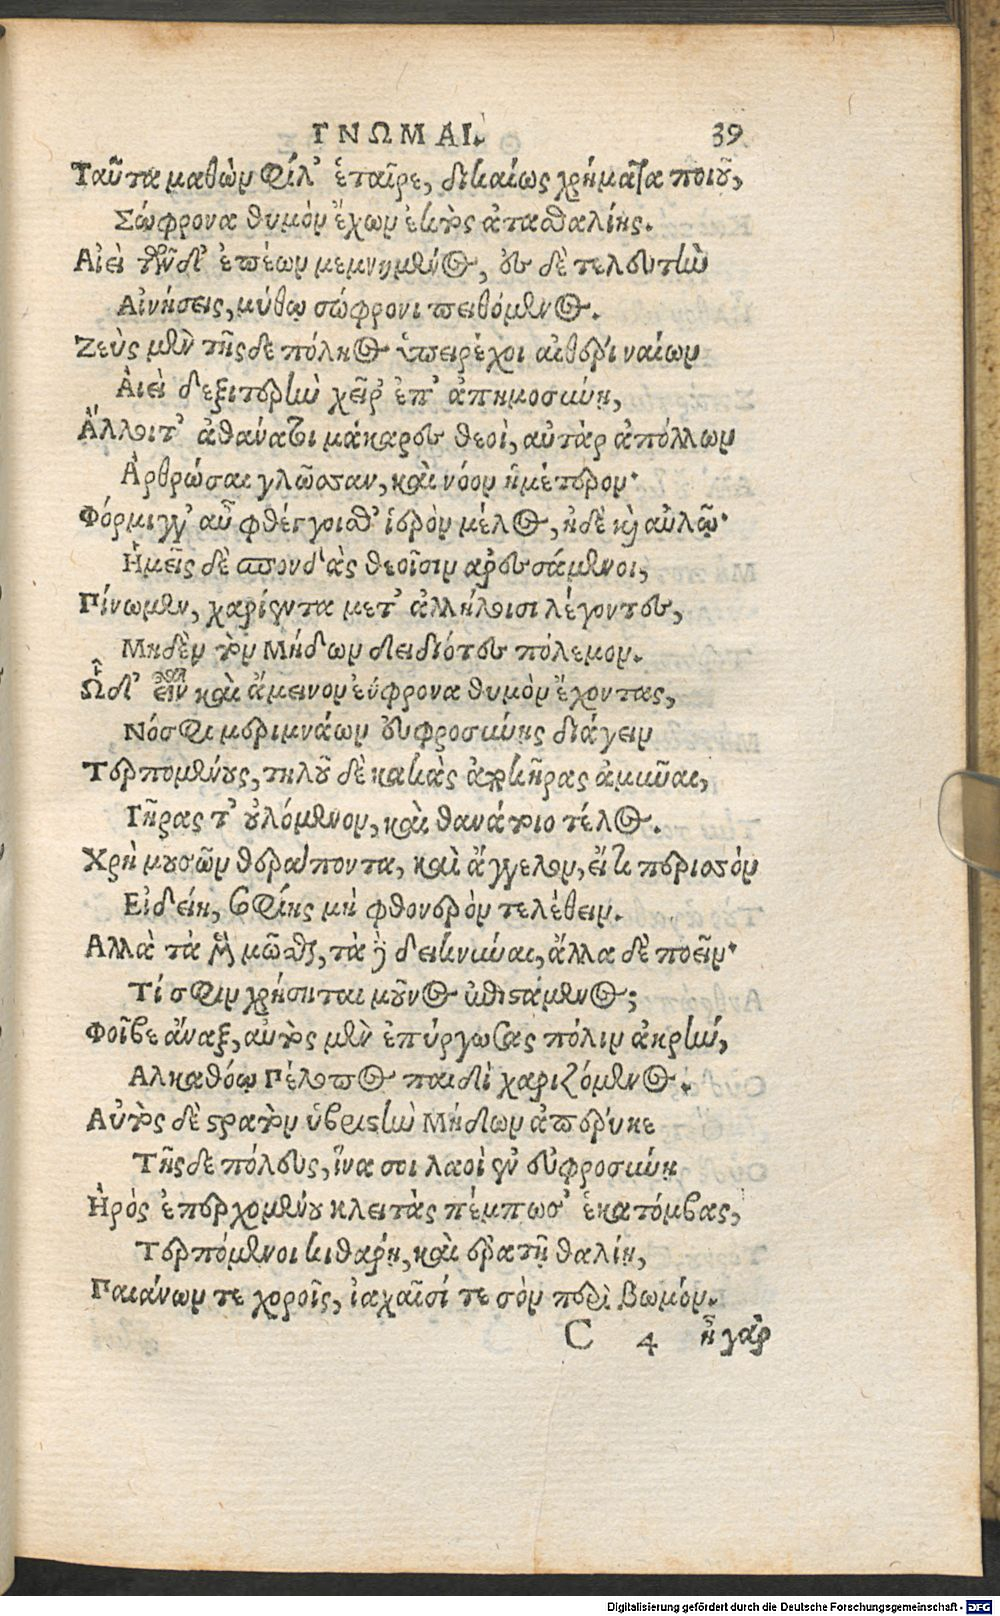 ΓΝΩΜΑΙ. 39
Ταῦτα μαθὼν φίλ' ἑταῖρε, δικαίως χρήματα ποιοῦ,
Σώφρονα θυμὸν ἔχων ἐκτὸς ἀτασθαλίης.
Αἰεὶ τῶνδ' ἐπέων μεμνημένος, ἐς δὲ τελευτὴν
Αἰνήσεις, μύθῳ σώφρονι πειθόμενος.
Ζεὺς μὲν τῆσδε πόληος ὑπειρέχοι αἰθέρι ναίων
Ἀιεὶ δεξιτερὴν χεῖρ' ἐπ' ἀπημοσύνῃ,
Ἄλλοι τ' ἀθάνατοι μάκαρες θεοὶ, αὐτὰρ ἀπόλλων
Ἀρθρώσαι γλῶσσαν, καὶ νόον ἡμέτερον·
Φόρμιγγ' αὖ φθέγγοιθ' ἱερὸν μέλος, ἠδὲ καὶ αὐλῷ·
Ἡμεῖς δὲ σπονδὰς θεοῖσιν ἀρεσσάμενοι,
Πίνωμεν, χαρίεντα μετ' ἀλλήλοισι λέγοντες,
Μηδὲν τὸν Μήδων δειδιότες πόλεμον.
Ὧδ' εἶν καὶ ἄμεινον ἐύφρονα θυμὸν ἔχοντας,
Νόσφι μεριμνάων εὐφροσύνης διάγειν
Τερπομένους, τηλοῦ δὲ κακὰς ἀπὸ κῆρας ἀμῦναι,
Γῆρας τ' οὐλόμενον, καὶ θανάτοιο τέλος.
Χρὴ μουσῶν θεράποντα, καὶ ἄγγελον, εἴ τι περισσὸν
Εἰδείη, σοφίης μὴ φθονερὸν τελέθειν.
Αλλὰ τὰ μὲν μῶσθαι, τὰ δὲ δεικνύναι, ἄλλα δὲ ποεῖν·
Τί σφιν χρήσηται μοῦνος ἐπιστάμενος;
Φοῖβε ἄναξ, αὐτὸς μὲν ἐπύργωσας πόλιν ἀκρὴν,
Αλκαθόῳ Πέλοπος παιδὶ χαριζόμενος.
Αὐτὸς δὲ στρατὸν ὑβριστὴν Μήδων ἀπέρυκε
Τῆσδε πόλευς, ἵνα σοι λαοὶ ἐν εὐφροσύνῃ
Ἦρὸς ἐπερχομένου κλειτὰς πέμπωσ' ἑκατόμβας,
Τερπόμενοι κιθάρῃ, καὶ ἐρατῇ θαλίῃ,
Παιάνων τε χοροῖς, ἰαχαῖσί τε σὸν περὶ βωμόν.
C 4 ἦ γὰρ
Digitalisierung gefördert durch die Deutsche Forschungsgemeinschaft - DFG